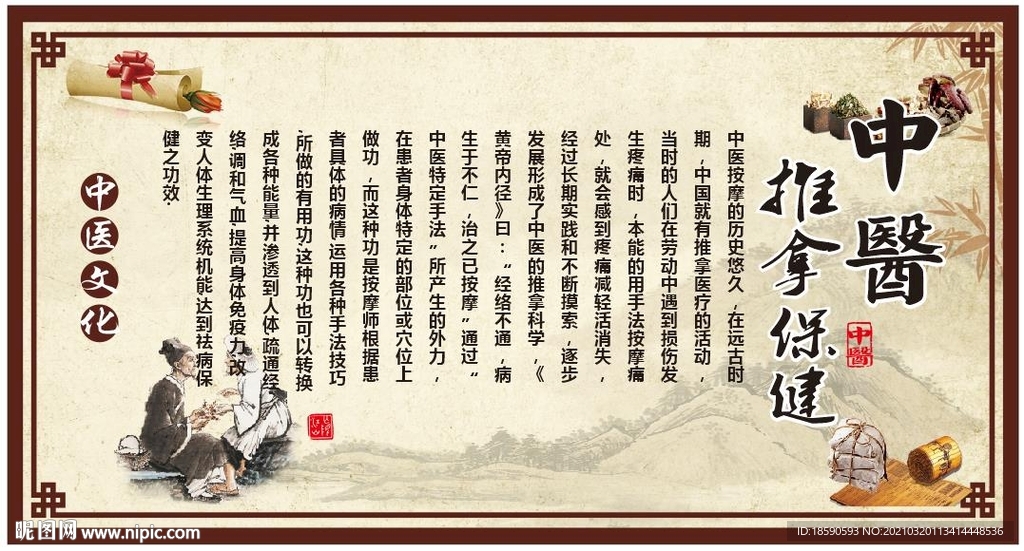 中醫
推拿保健
中醫
中医按摩的历史悠久，在远古时
期，中国就有推拿医疗的活动，
当时的人们在劳动中遇到损伤发
生疼痛时，本能的用手法按摩痛
处，就会感到疼痛减轻活消失，
经过长期实践和不断摸索，逐步
发展形成了中医的推拿科学，《
黄帝内径》曰：“经络不通，病
生于不仁，治之已按摩”通过“
中医特定手法”所产生的外力，
在患者身体特定的部位或穴位上
做功，而这种功是按摩师根据患
者具体的病情.运用各种手法技巧
.所做的有用功.这种功也可以转换
成各种能量.并渗透到人体.疏通经
络.调和气血.提高身体免疫力.改
变人体生理系统机能达到祛病保
健之功效.
中医文化
昵图网 www.nipic.com
ID:18590593 NO:20210320113414448536